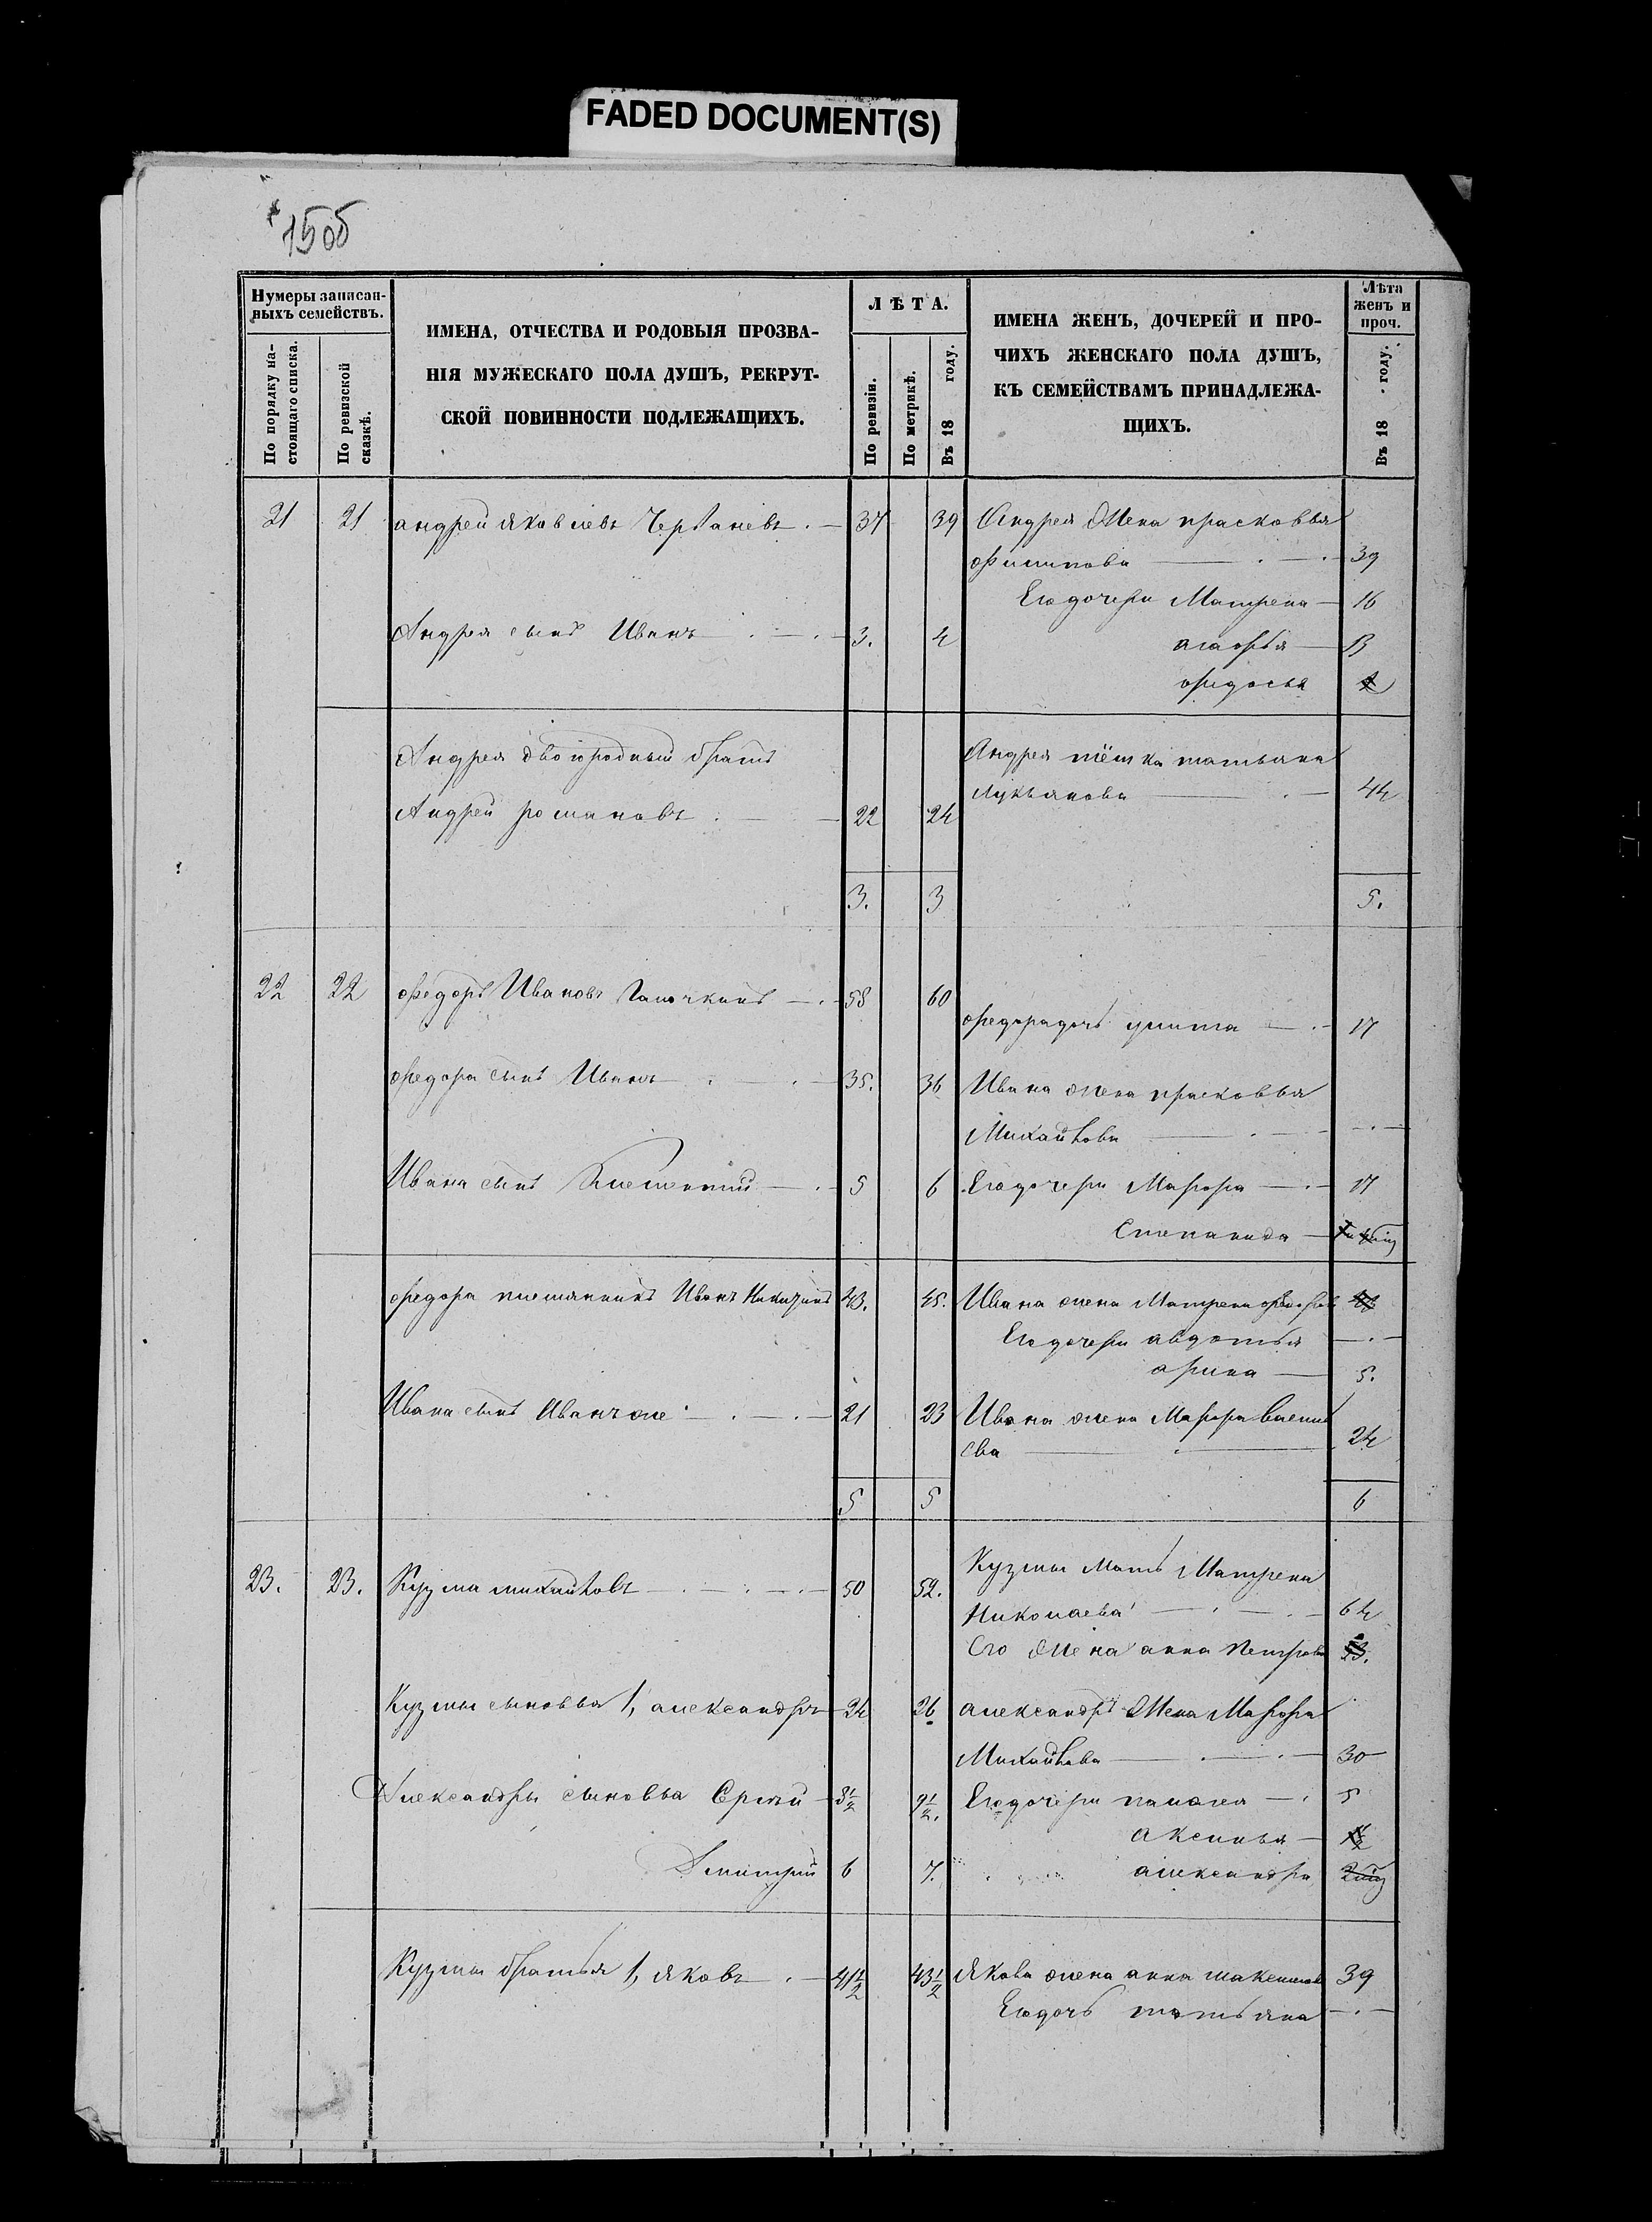 FADED DOCUMENT(S)
150б
Нумеры записан-
ныхъ семействъ.
По порядку на-
стоящаго списка.
По ревизской
сказкѣ.
ИМЕНА, ОТЧЕСТВА И РОДОВЫЯ ПРОЗВА-
НІЯ МУЖЕСКАГО ПОЛА ДУШЪ, РЕКРУТ-
СКОЙ ПОВИННОСТИ ПОДЛЕЖАЩИХЪ.
ЛѢТА.
По ревизіи.
По метрикѣ.
Въ 18 году.
ИМЕНА ЖЕНЪ, ДОЧЕРЕЙ И ПРО-
ЧИХЪ ЖЕНСКАГО ПОЛА ДУШЪ,
КЪ СЕМЕЙСТВАМЪ ПРИНАДЛЕЖА-
ЩИХЪ.
Лѣта
женъ и
проч.
Въ 18 году.
21 21 андрей яковлевъ 37 39 Андрея жена прасковья
филипова 39
Его дочери Матрена 16
Андрея сынъ Иванъ 3. 4
агафья 13
федосья
Андрея двоюродный братъ
Андрея тётка татьяна
лукьянова 44
Андрей романовъ 22 24
3. 3 5.
22 22 федоръ Ивановъ 58 60
федора дочь улита 17
федора сынъ Иванъ 35. 36 Ивана жена прасковья
Михайлова
Ивана сынъ Клементий 5 6 Его дочери Марфа 17
Степанида
федора племянникъ Иванъ 43. 45. Ивана жена Матрена
Его дочери авдотья
арина 5.
Ивана сынъ Иванъ же 21 23 Ивана жена Марфа Василь
ева 24
5 5 6
23. 23. Кузма михайловъ 50 52. Кузмы мать Матрена
Николаева 64
Его жена анна Петрова
Кузмы сыновья 1, александръ 24 26 александръ жена Марфа
Михайлова 30
Александры сыновья Сргѣй 8½ 9½. Его дочери 5
аксинья
Дмитрий 6 7. александра
Кузмы братья 1, яковъ 41½ 43½ якова жена анна 39
Его дочь татьяна